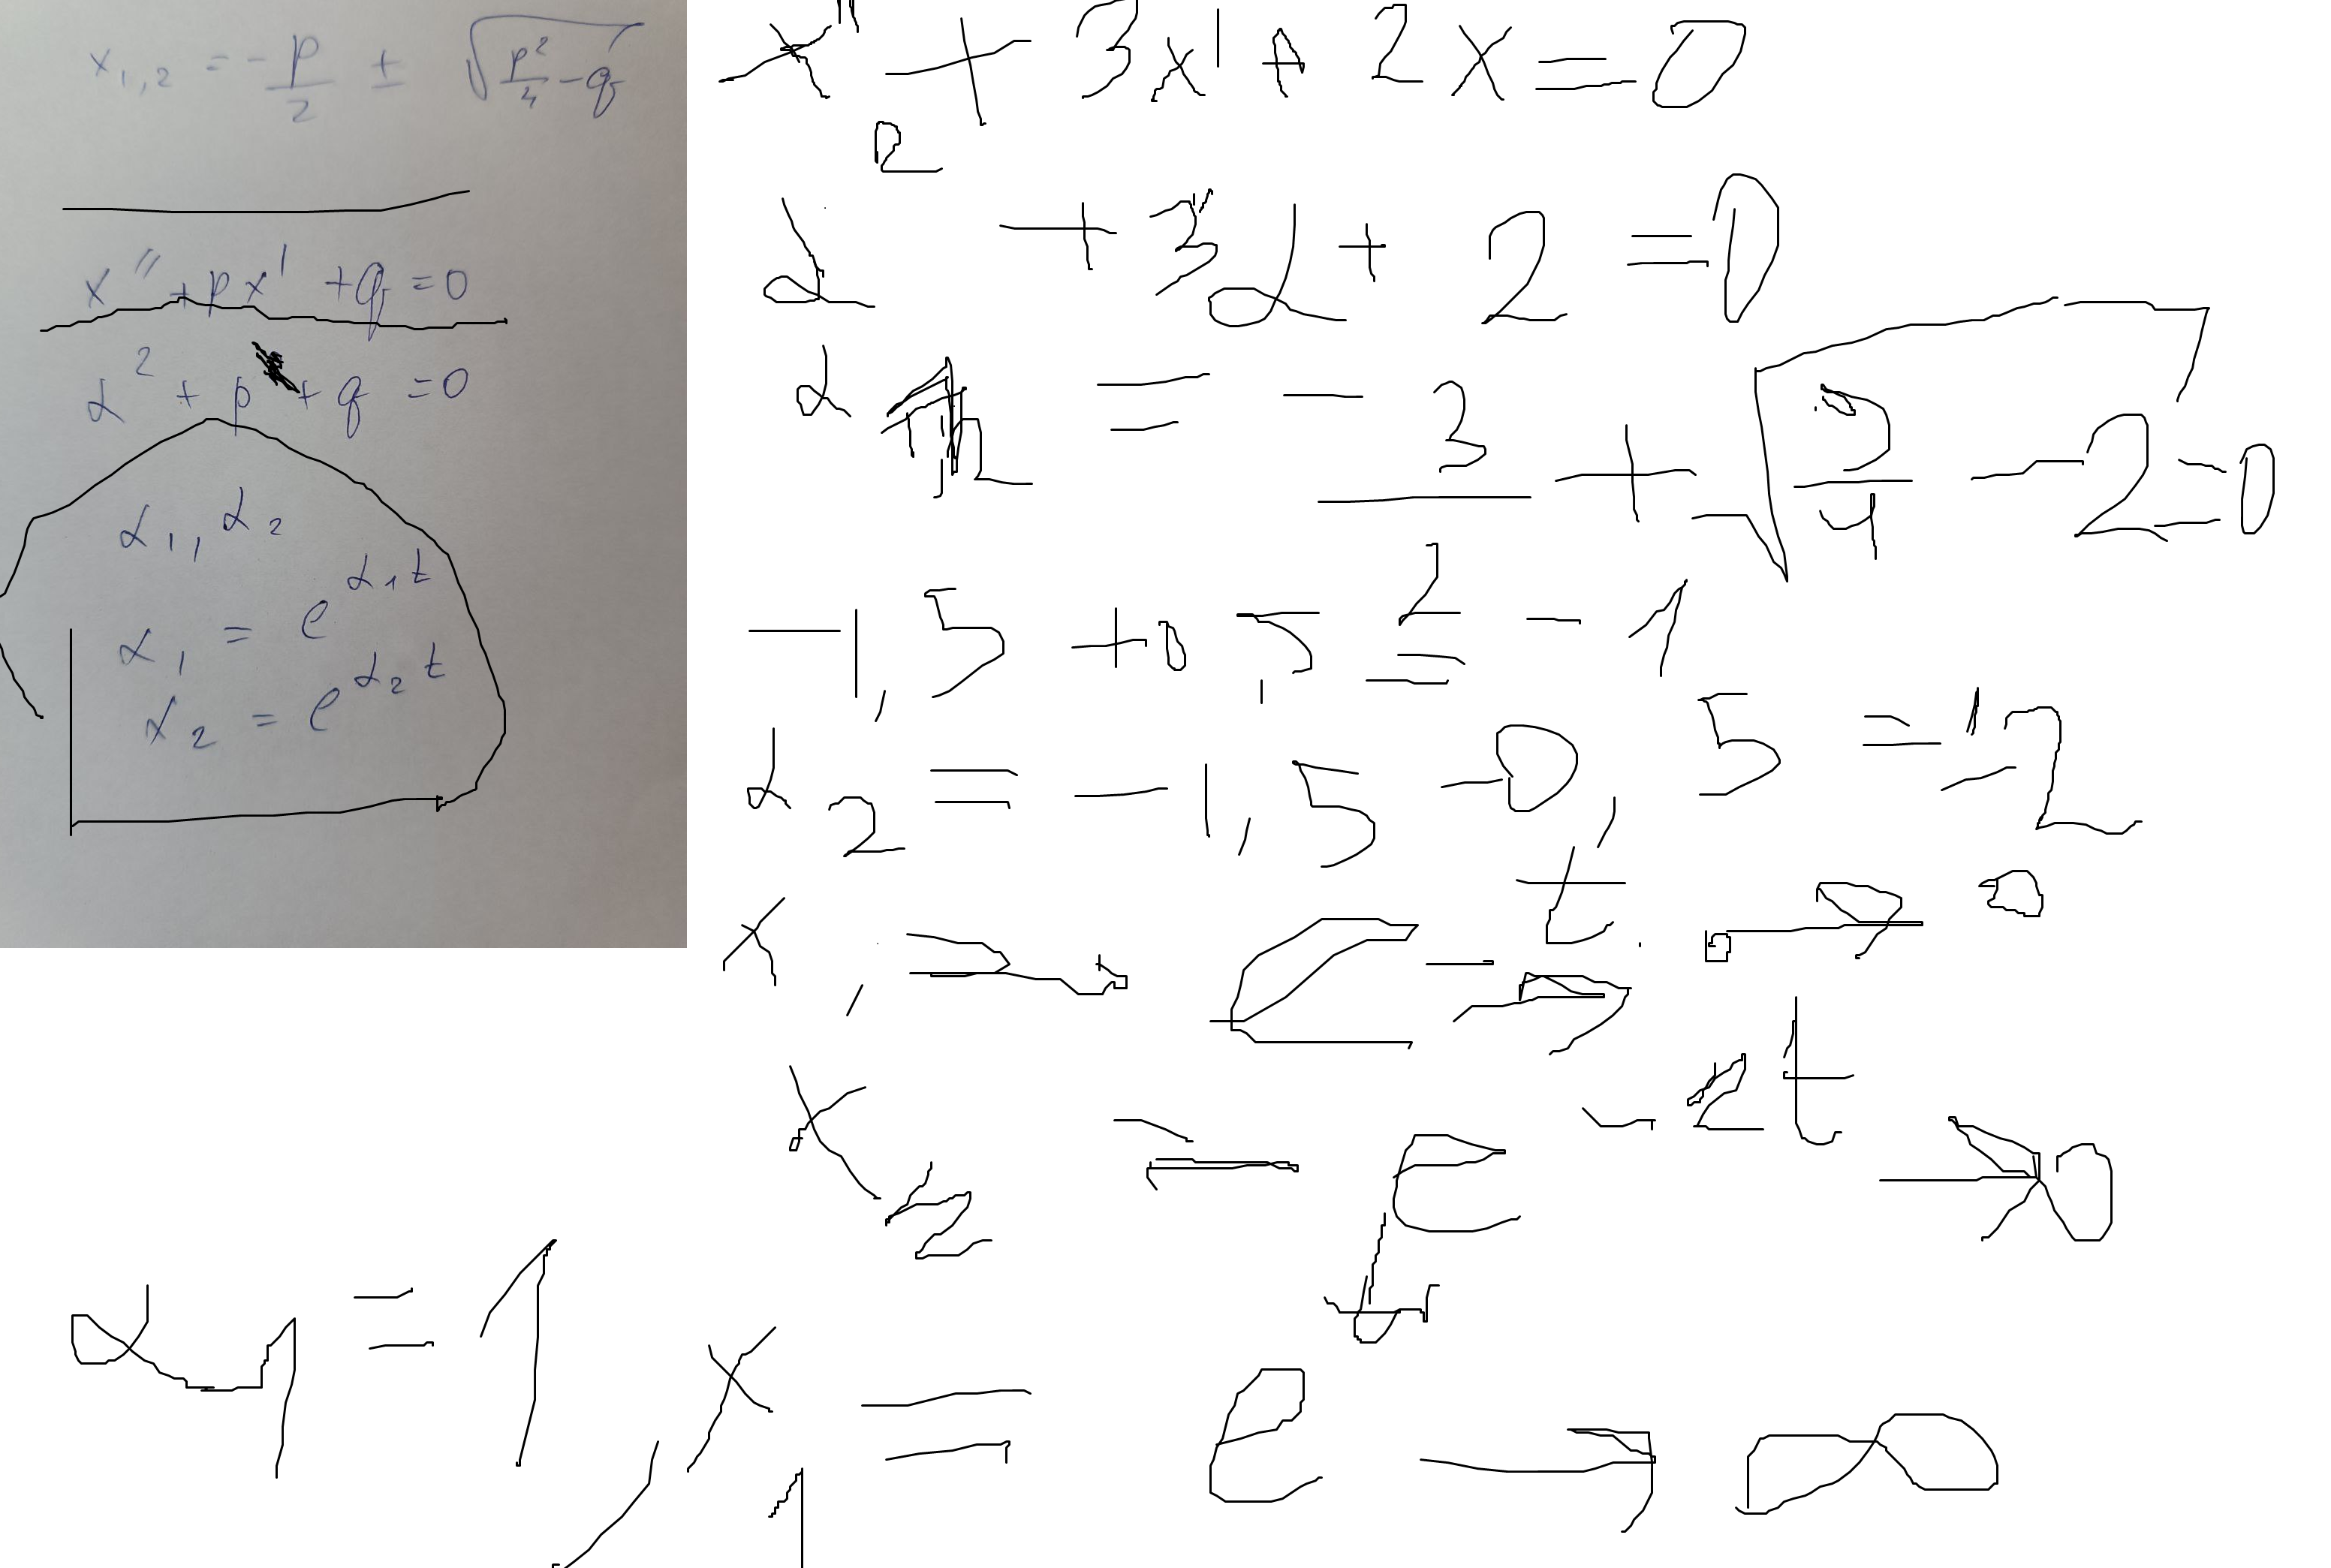 x₁,₂ = -p/2 ± √(p²/4 - q)
x'' + px' + q = 0
α² + p + q = 0
α₁, α₂
α₁ = e^(α₁t)
x₂ = e^(α₂t)
x'' + 3x' + 2x = 0
α² + 3α + 2 = 0
= -3/ + √( /4 - 2) = 0
-1,5 + 0,5 = -1
α₂ = -1,5 - 0,5 = -2
x₂ = e^(-2t) → 0
α₁ = 1
x₁ = e^t → ∞